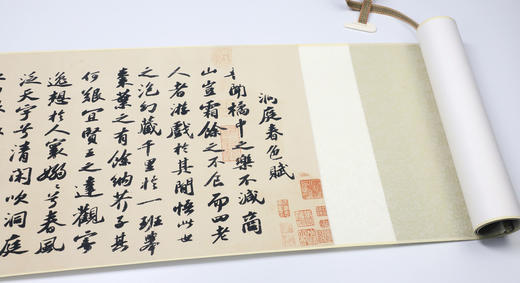 洞庭春色賦
吾聞橘中之樂不減商
山豈霜餘之不食而四老
人者游戲於其間悟此世
之泡幻藏千里於一班舉
棗葉之有餘納芥子其
何艱宜賢王之達觀寄
逸想於人寰嫋〻兮春風
泛天宇兮清閑吹洞庭